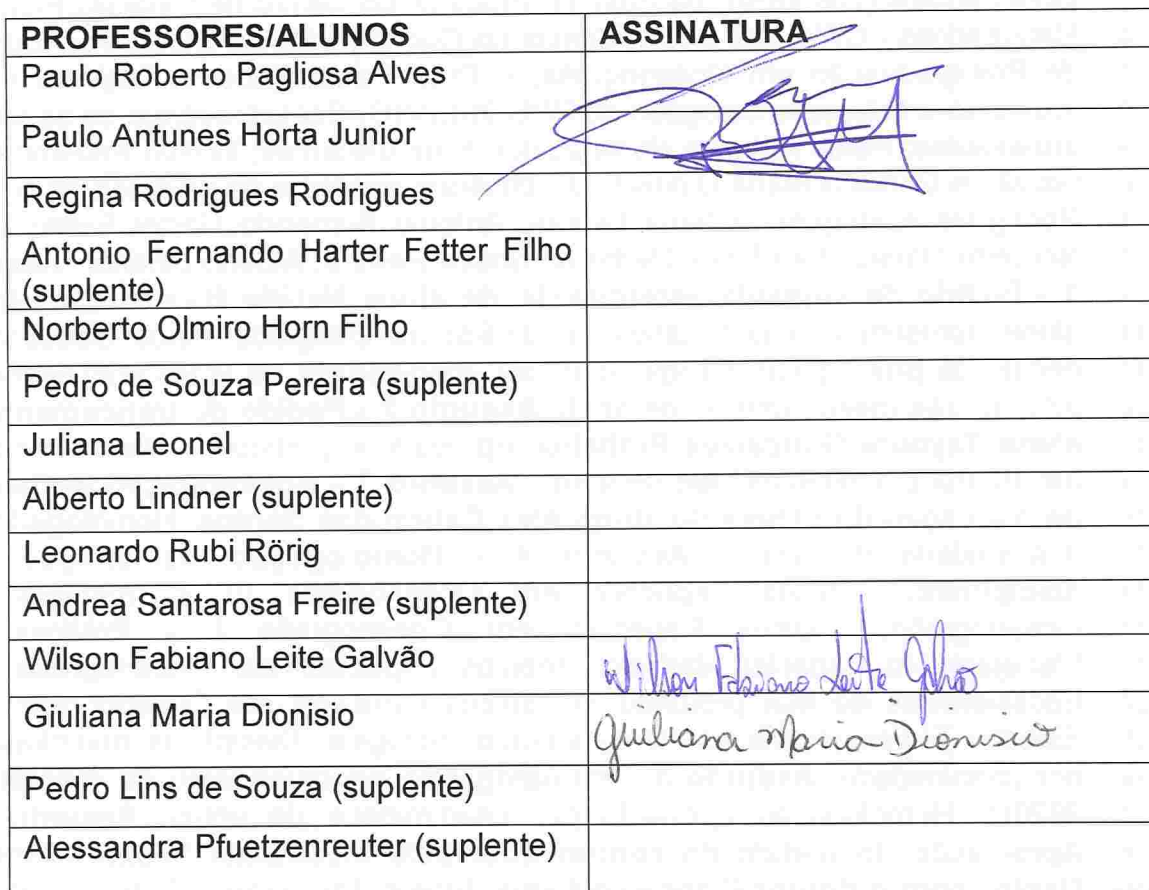 PROFESSORES/ALUNOS ASSINATURA
Paulo Roberto Pagliosa Alves
Paulo Antunes Horta Junior
Regina Rodrigues Rodrigues
Antonio Fernando Harter Fetter Filho
(suplente)
Norberto Olmiro Horn Filho
Pedro de Souza Pereira (suplente)
Juliana Leonel
Alberto Lindner (suplente)
Leonardo Rubi Rörig
Andrea Santarosa Freire (suplente)
Wilson Fabiano Leite Galvão Wilson Fabiano Leite Galvão
Giuliana Maria Dionisio Giuliana Maria Dionisio
Pedro Lins de Souza (suplente)
Alessandra Pfuetzenreuter (suplente)